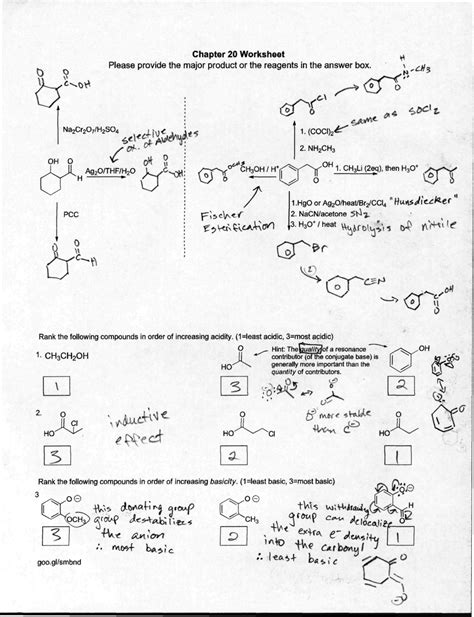 Chapter 20 Worksheet
Please provide the major product or the reagents in the answer box.
O
O
OH
Na2Cr2O7/H2SO4
selective
ox. of Aldehydes
OH O
H
Ag2O/THF/H2O
OH O
OH
PCC
O
O
H
O
Cl
O
N-CH3
H
same as SOCl2
1. (COCl)2
2. NH2CH3
O
OCH3
CH3OH / H+
O
OH
1. CH3Li (2eq), then H3O+
O
Fischer
Esterification
1.HgO or Ag2O/heat/Br2/CCl4 "Hunsdiecker"
2. NaCN/acetone SN2
3. H3O+ / heat Hydrolysis of nitrile
Br
(2)
C≡N
O
OH
Rank the following compounds in order of increasing acidity. (1=least acidic, 3=most acidic)
1. CH3CH2OH
O
HO
Hint: The quality of a resonance
contributor (of the conjugate base) is
generally more important than the
quantity of contributors.
OH
1
3
2
O⊖ more stable
than C⊖
2.
O
HO
Cl
inductive
effect
O
HO
Cl
O
HO
3
2
1
Rank the following compounds in order of increasing basicity. (1=least basic, 3=most basic)
3
O⊖
OCH3
this donating group
group destabilizes
the anion
∴ most basic
3
O⊖
CH3
2
this withdrawing
group can delocalize
the extra e- density
into the carbonyl
∴ least basic
1
goo.gl/smbnd